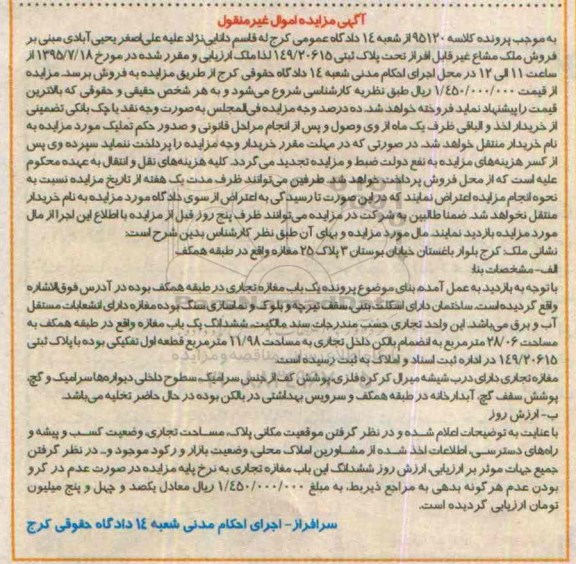 آگهی مزایده اموال غیرمنقول
به موجب پرونده کلاسه ۹۵۱۲۰ از شعبه ۱۴ دادگاه عمومی کرج له قاسم دانایی‌نژاد علیه علی‌اصغر یحیی‌آبادی مبنی بر
فروش ملک مشاع غیر قابل افراز تحت پلاک ثبتی ۱۴۹/۲۰۶۱۵ لذا ملک ارزیابی و مقرر شده در مورخ ۱۳۹۵/۷/۱۸ از
ساعت ۱۱ الی ۱۲ در محل اجرای احکام مدنی شعبه ۱۴ دادگاه حقوقی کرج از طریق مزایده به فروش برسد. مزایده
از قیمت ۱/۴۵۰/۰۰۰/۰۰۰ ریال طبق نظریه کارشناسی شروع می‌شود و به هر شخص حقیقی و حقوقی که بالاترین
قیمت را پیشنهاد نماید فروخته خواهد شد. ده درصد وجه مزایده فی‌المجلس به صورت وجه نقد یا چک بانکی تضمینی
از خریدار اخذ و الباقی ظرف یک ماه از وی وصول و پس از انجام مراحل قانونی و صدور حکم تملیک مورد مزایده به
نام خریدار منتقل خواهد شد. در صورتی که در مهلت مقرر خریدار وجه مزایده را پرداخت ننماید سپرده وی پس
از کسر هزینه‌های مزایده به نفع دولت ضبط و مزایده تجدید می‌گردد. کلیه هزینه‌های نقل و انتقال به عهده محکوم
علیه است که از محل فروش پرداخت خواهد شد. طرفین می‌توانند ظرف مدت یک هفته از تاریخ مزایده نسبت به
نحوه انجام مزایده اعتراض نمایند که در این صورت تا رسیدگی به اعتراض از سوی دادگاه مورد مزایده به نام خریدار
منتقل نخواهد شد. ضمنا طالبین به شرکت در مزایده می‌توانند ظرف پنج روز قبل از مزایده با اطلاع این اجرا از مال
مورد مزایده بازدید نمایند. مال مورد مزایده و بهای آن طبق نظر کارشناس بدین شرح است:
نشانی ملک: کرج بلوار باغستان خیابان بوستان ۳ پلاک ۲۵ مغازه واقع در طبقه همکف
الف- مشخصات بنا:
با توجه به بازدید به عمل آمده بنای موضوع پرونده یک باب مغازه تجاری در طبقه همکف بوده در آدرس فوق‌الاشاره
واقع گردیده است. ساختمان دارای اسکلت بتنی، سقف تیرچه و بلوک و نماسازی سنگ بوده مغازه دارای انشعابات مستقل
آب و برق می‌باشد. این واحد تجاری حسب مندرجات سند مالکیت، ششدانگ یک باب مغازه واقع در طبقه همکف به
مساحت ۲۸/۰۶ مترمربع به انضمام بالکن داخل تجاری به مساحت ۱۱/۹۸ مترمربع قطعه اول تفکیکی بوده با پلاک ثبتی
۱۴۹/۲۰۶۱۵ در اداره ثبت اسناد و املاک به ثبت رسیده است.
مغازه تجاری دارای درب شیشه میرال کرکره فلزی، پوشش کف از جنس سرامیک، سطوح داخلی دیواره‌ها سرامیک و گچ،
پوشش سقف گچ، آبدارخانه در طبقه همکف و سرویس بهداشتی در بالکن بوده در حال حاضر تخلیه می‌باشد.
ب- ارزش روز
با عنایت به توضیحات اعلام شده و در نظر گرفتن موقعیت مکانی پلاک، مساحت تجاری، وضعیت کسب و پیشه و
راه‌های دسترسی، اطلاعات اخذ شده از مشاورین املاک محلی، وضعیت بازار و رکود موجود و... در نظر گرفتن
جمیع جهات موثر بر ارزیابی، ارزش روز ششدانگ این باب مغازه تجاری به نرخ پایه مزایده در صورت عدم در گرو
بودن عدم هر گونه بدهی به مراجع ذیربط، به مبلغ ۱/۴۵۰/۰۰۰/۰۰۰ ریال معادل یکصد و چهل و پنج میلیون
تومان ارزیابی گردیده است.
سرافراز- اجرای احکام مدنی شعبه ۱۴ دادگاه حقوقی کرج